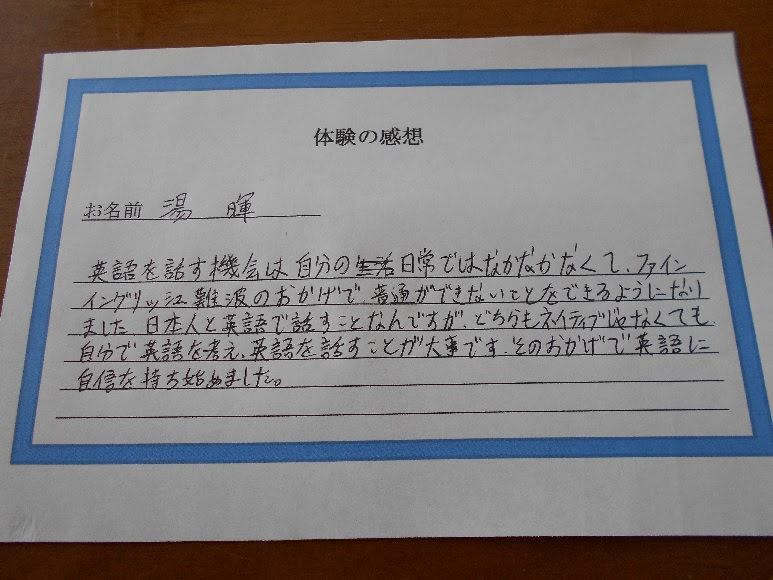 体験の感想
お名前 湯 暉
英語を話す機会は自分の生活日常ではなかなかなくて、ファイン
イングリッシュ難波のおかげで、普通ができないことをできるようになり
ました。日本人と英語で話すことなんですが、どちらもネイティブじゃなくても
自分で英語を考え、英語を話すことが大事です。そのおかげで英語に
自信を持ち始めました。